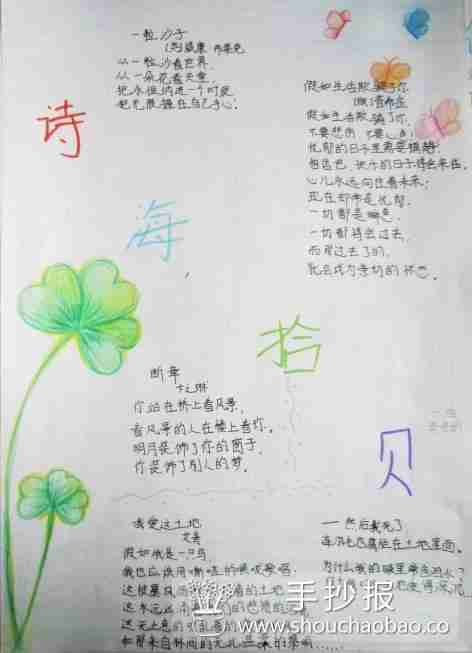 一粒沙子
(英)威廉·布莱克
从一粒沙看世界,
从一朵花看天堂,
把永恒纳进一个时辰
把无限握在自己手心。
假如生活欺骗了你
假如生活欺骗了你,
不要悲伤 不要心急!
忧郁的日子里需要镇静
相信吧 快乐的日子将会来临。
心儿永远向往着未来;
现在却常是忧郁
一切都是瞬息
一切都将会过去,
而那过去了的,
就会成为亲切的怀恋
诗
海
拾
贝
断章
卞之琳
你站在桥上看风景,
看风景的人在楼上看你。
明月装饰了你的窗子
你装饰了别人的梦。
我爱这土地
艾青
假如我是一只鸟
我也应该用嘶哑的喉咙歌唱
这被暴
的土地
这永远
们的悲愤的
——然后我死了
连羽毛也腐烂在土地里面。
为什么我的眼里常含泪水?
手抄报
www.shouchaobao.co